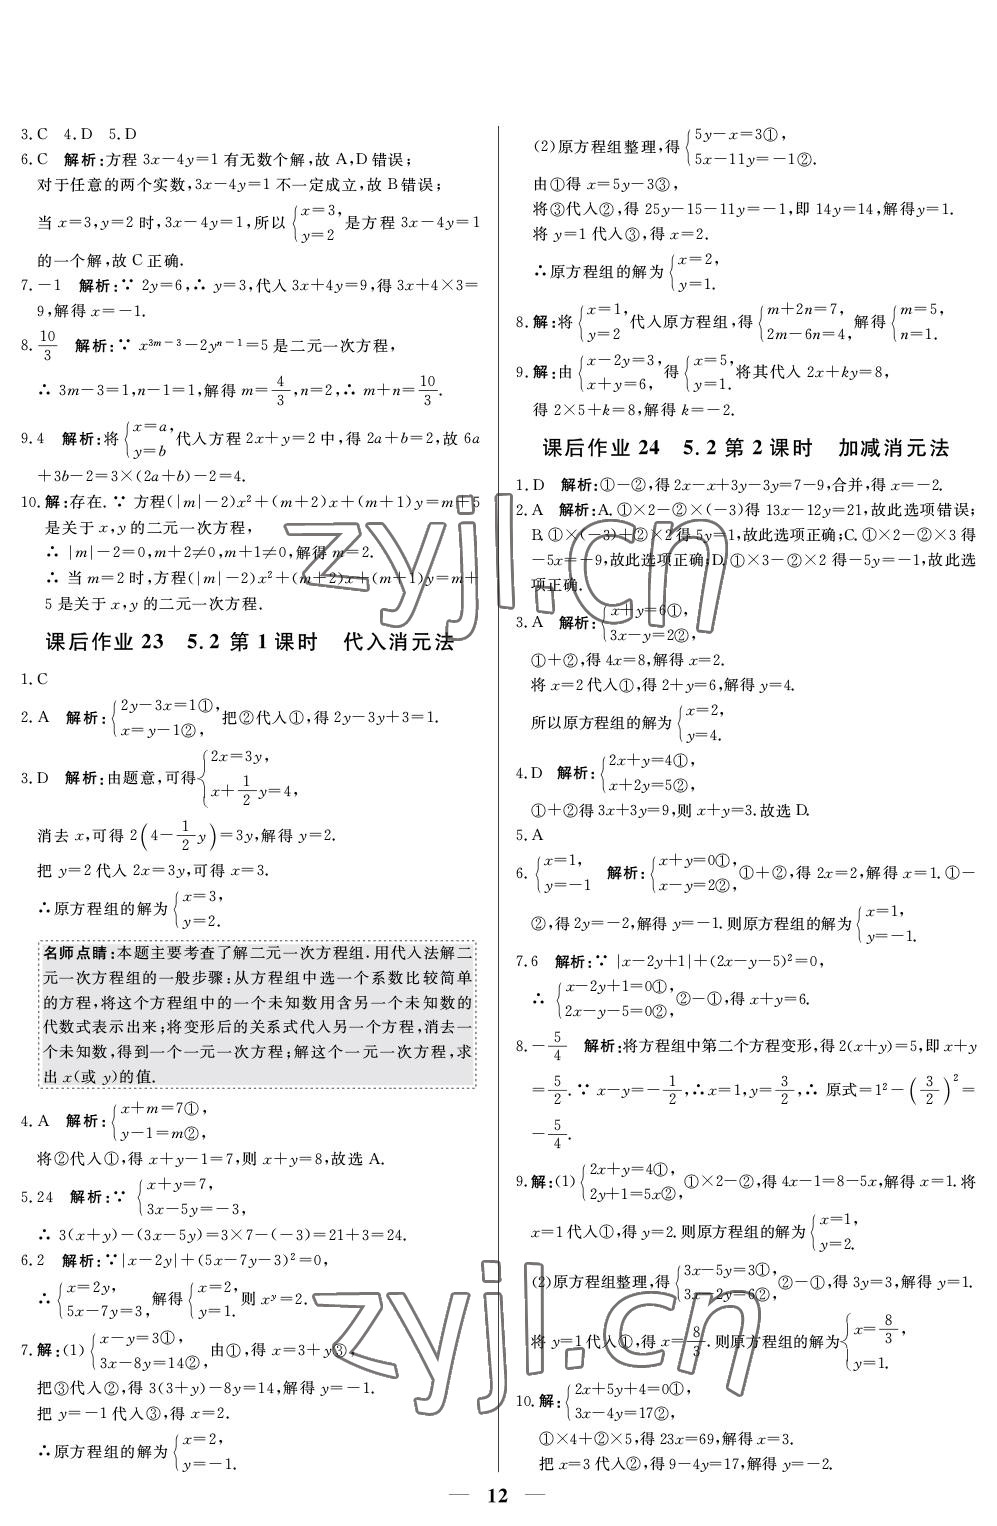 3. C　4. D　5. D
6. C　解析:方程 3x－4y＝1 有无数个解,故 A,D 错误;
对于任意的两个实数,3x－4y＝1 不一定成立,故 B 错误;
当 x＝3,y＝2 时,3x－4y＝1,所以 {x＝3, y＝2 是方程 3x－4y＝1
的一个解,故 C 正确.
7. －1　解析:∵ 2y＝6,∴ y＝3,代入 3x＋4y＝9,得 3x＋4×3＝
9,解得 x＝－1.
8. 10/3　解析:∵ x^(3m－3)－2y^(n－1)＝5 是二元一次方程,
∴ 3m－3＝1,n－1＝1,解得 m＝4/3,n＝2,∴ m＋n＝10/3.
9. 4　解析:将 {x＝a, y＝b 代入方程 2x＋y＝2 中,得 2a＋b＝2,故 6a
＋3b－2＝3×(2a＋b)－2＝4.
10. 解:存在.∵ 方程(|m|－2)x²＋(m＋2)x＋(m＋1)y＝m＋5
是关于 x,y 的二元一次方程,
∴ |m|－2＝0,m＋2≠0,m＋1≠0,解得 m＝2.
∴ 当 m＝2 时,方程(|m|－2)x²＋(m＋2)x＋(m＋1)y＝m＋
5 是关于 x,y 的二元一次方程.
课后作业 23　5.2 第 1 课时　代入消元法
1. C
2. A　解析:{2y－3x＝1①, x＝y－1②, 把②代入①,得 2y－3y＋3＝1.
3. D　解析:由题意,可得 {2x＝3y, x＋1/2y＝4,
消去 x,可得 2(4－1/2y)＝3y,解得 y＝2.
把 y＝2 代入 2x＝3y,可得 x＝3.
∴原方程组的解为 {x＝3, y＝2.
名师点睛:本题主要考查了解二元一次方程组.用代入法解二
元一次方程组的一般步骤:从方程组中选一个系数比较简单
的方程,将这个方程组中的一个未知数用含另一个未知数的
代数式表示出来;将变形后的关系式代入另一个方程,消去一
个未知数,得到一个一元一次方程;解这个一元一次方程,求
出 x(或 y)的值.
4. A　解析:{x＋m＝7①, y－1＝m②,
将②代入①,得 x＋y－1＝7,则 x＋y＝8,故选 A.
5. 24　解析:∵ {x＋y＝7, 3x－5y＝－3,
∴ 3(x＋y)－(3x－5y)＝3×7－(－3)＝21＋3＝24.
6. 2　解析:∵|x－2y|＋(5x－7y－3)²＝0,
∴ {x＝2y, 5x－7y＝3, 解得 {x＝2, y＝1. 则 x^y＝2.
7. 解:(1) {x－y＝3①, 3x－8y＝14②, 由①,得 x＝3＋y③,
把③代入②,得 3(3＋y)－8y＝14,解得 y＝－1.
把 y＝－1 代入③,得 x＝2.
∴原方程组的解为 {x＝2, y＝－1.
(2)原方程组整理,得 {5y－x＝3①, 5x－11y＝－1②.
由①得 x＝5y－3③,
将③代入②,得 25y－15－11y＝－1,即 14y＝14,解得y＝1.
将 y＝1 代入③,得 x＝2.
∴原方程组的解为 {x＝2, y＝1.
8. 解:将 {x＝1, y＝2 代入原方程组,得 {m＋2n＝7, 2m－6n＝4, 解得 {m＝5, n＝1.
9. 解:由 {x－2y＝3, x＋y＝6, 得 {x＝5, y＝1. 将其代入 2x＋ky＝8,
得 2×5＋k＝8,解得 k＝－2.
课后作业 24　5.2 第 2 课时　加减消元法
1. D　解析:①－②,得 2x－x＋3y－3y＝7－9,合并,得 x＝－2.
2. A　解析:A. ①×2－②×(－3)得 13x－12y＝21,故此选项错误;
B. ①×(－3)＋②×2 得 5y＝1,故此选项正确;C. ①×2－②×3 得
－5x＝－9,故此选项正确;D. ①×3－②×2 得－5y＝－1,故此选
项正确.
3. A　解析:{x＋y＝6①, 3x－y＝2②,
①＋②,得 4x＝8,解得 x＝2.
将 x＝2 代入①,得 2＋y＝6,解得 y＝4.
所以原方程组的解为 {x＝2, y＝4.
4. D　解析:{2x＋y＝4①, x＋2y＝5②,
①＋②得 3x＋3y＝9,则 x＋y＝3.故选 D.
5. A
6. {x＝1, y＝－1　解析:{x＋y＝0①, x－y＝2②, ①＋②,得 2x＝2,解得 x＝1. ①－
②,得 2y＝－2,解得 y＝－1.则原方程组的解为 {x＝1, y＝－1.
7. 6　解析:∵ |x－2y＋1|＋(2x－y－5)²＝0,
∴ {x－2y＋1＝0①, 2x－y－5＝0②, ②－①,得 x＋y＝6.
8. －5/4　解析:将方程组中第二个方程变形,得 2(x＋y)＝5,即 x＋y
＝5/2.∵ x－y＝－1/2,∴x＝1,y＝3/2,∴ 原式＝1²－(3/2)²＝
－5/4.
9. 解:(1) {2x＋y＝4①, 2y＋1＝5x②, ①×2－②,得 4x－1＝8－5x,解得 x＝1. 将
x＝1 代入①,得 y＝2.则原方程组的解为 {x＝1, y＝2.
(2)原方程组整理,得 {3x－5y＝3①, 3x－2y＝6②, ②－①,得 3y＝3,解得 y＝1.
将 y＝1 代入①,得 x＝8/3.则原方程组的解为 {x＝8/3, y＝1.
10. 解:{2x＋5y＋4＝0①, 3x－4y＝17②,
①×4＋②×5,得 23x＝69,解得 x＝3.
把 x＝3 代入②,得 9－4y＝17,解得 y＝－2.
— 12 —
zyjl.cn
zyjl.cn